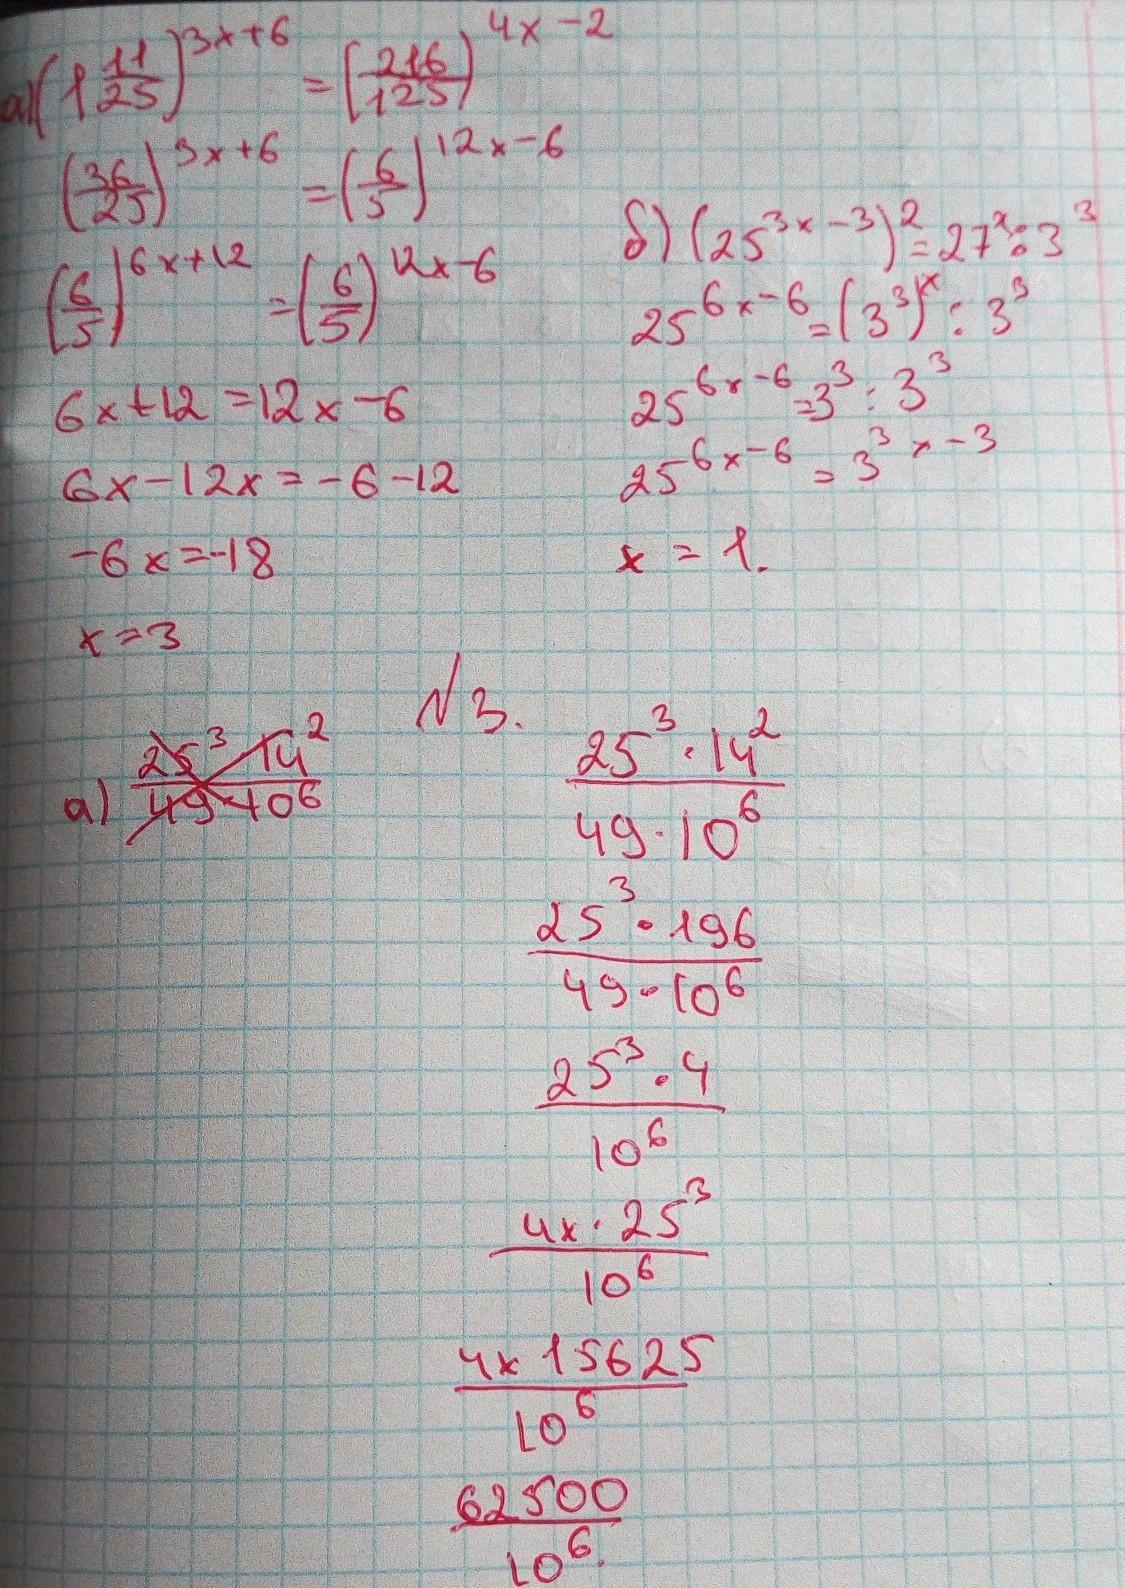 а) (1 11/25)^(3x+6) = (216/125)^(4x-2)
(36/25)^(3x+6) = (6/5)^(12x-6)
(6/5)^(6x+12) = (6/5)^(12x-6)
6x+12=12x-6
6x-12x=-6-12
-6x=-18
x=3
б) (25^(3x-3))^2 = 27^x : 3^3
25^(6x-6) = (3^3)^x : 3^3
25^(6x-6) = 3^3 : 3^3
25^(6x-6) = 3^(3x-3)
x = 1.
N3.
а) 25^3 14^2 / 49 10^6
25^3 · 14^2 / 49 · 10^6
25^3 · 196 / 49 · 10^6
25^3 · 4 / 10^6
4x · 25^3 / 10^6
4x 15625 / 10^6
62500 / 10^6.